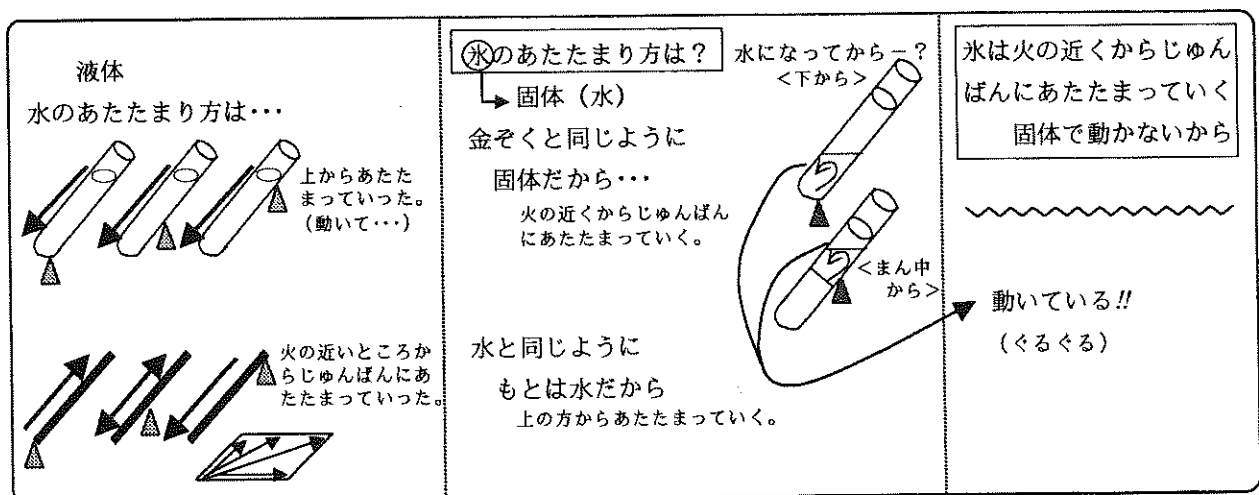 液体
水のあたたまり方は･･･
上からあたた
まっていった。
(動いて･･･)
火の近いところか
らじゅんばんにあ
たたまっていった。
氷のあたたまり方は？
固体（水）
金ぞくと同じように
固体だから･･･
火の近くからじゅんばん
にあたたまっていく。
水と同じように
もとは水だから
上の方からあたたまっていく。
水になってから－？
＜下から＞
＜まん中
から＞
氷は火の近くからじゅん
ばんにあたたまっていく
固体で動かないから
動いている!!
（ぐるぐる）